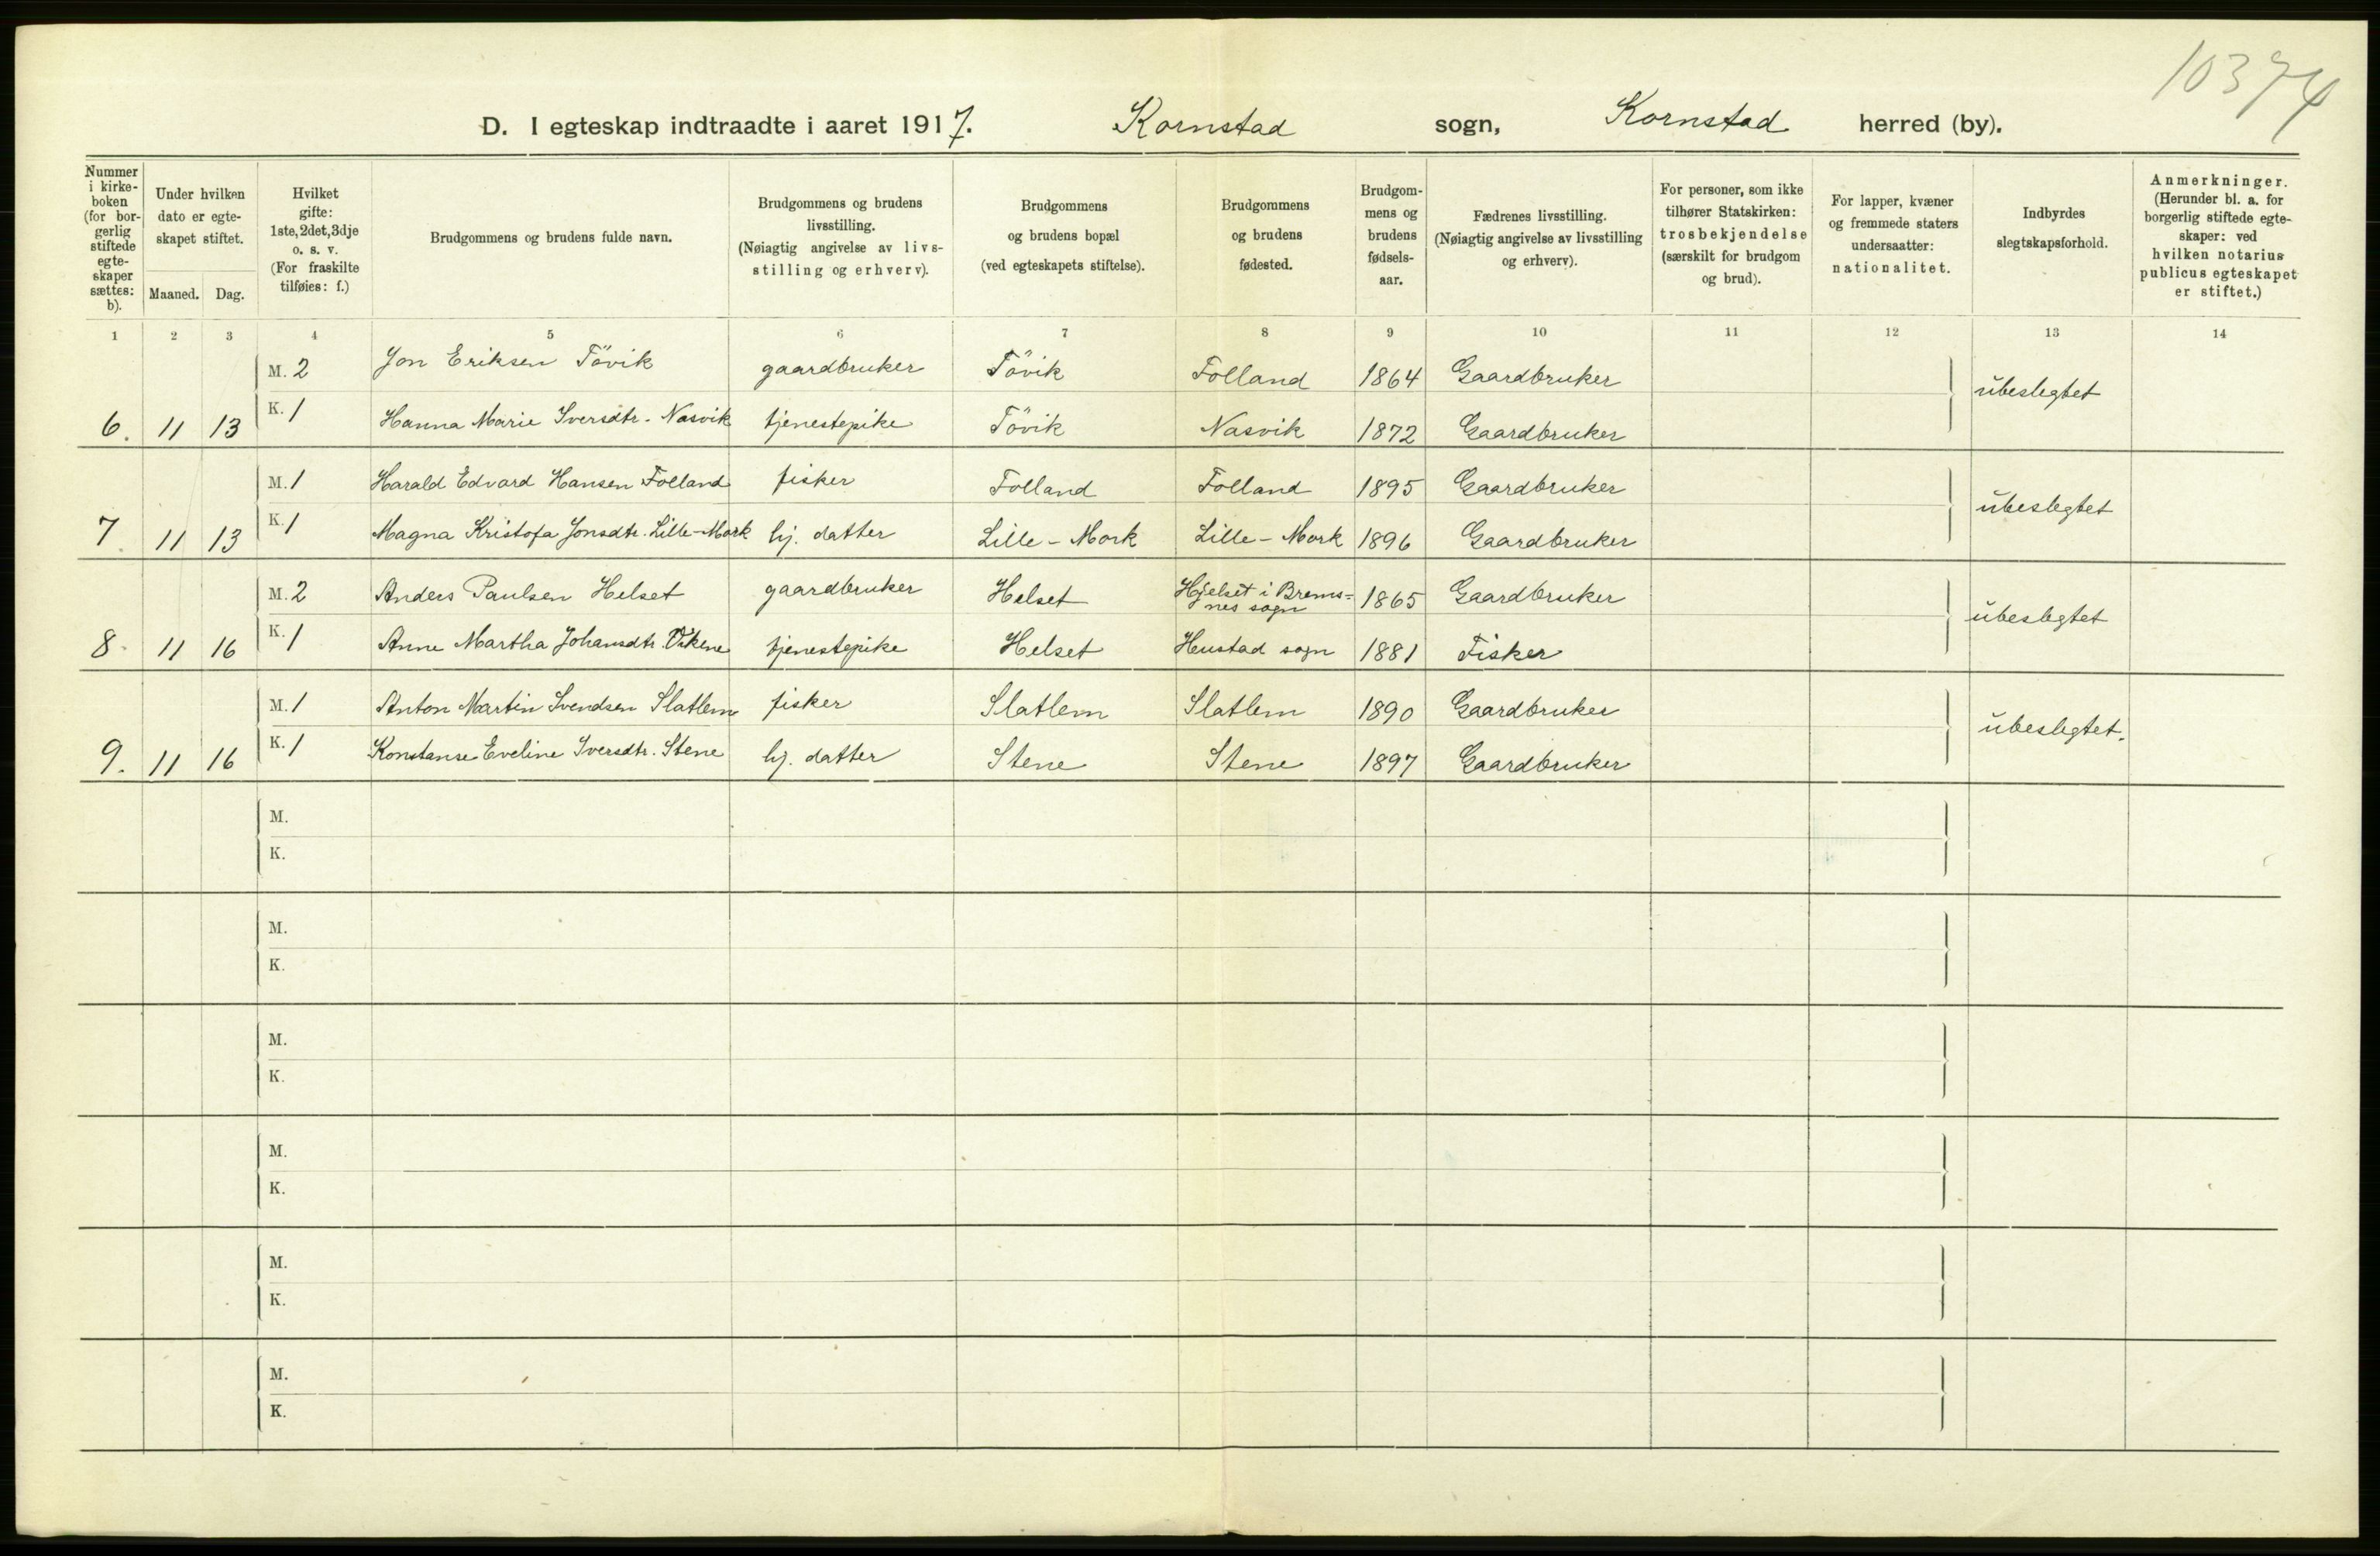 10374
D. I egteskap indtraadte i aaret 1917. Kornstad sogn, Kornstad herred (by).
Nummer i kirkeboken (for borgerlig stiftede egteskaper sættes: b).
Under hvilken dato er egteskapet stiftet.
Maaned. Dag.
Hvilket gifte: 1ste, 2det, 3dje o. s. v. (For fraskilte tilføies: f.)
Brudgommens og brudens fulde navn.
Brudgommens og brudens livsstilling. (Nøiagtig angivelse av livsstilling og erhverv).
Brudgommens og brudens bopæl (ved egteskapets stiftelse).
Brudgommens og brudens fødested.
Brudgommens og brudens fødselsaar.
Fædrenes livsstilling. (Nøiagtig angivelse av livsstilling og erhverv).
For personer, som ikke tilhører Statskirken: trosbekjendelse (særskilt for brudgom og brud).
For lapper, kvæner og fremmede staters undersaatter: nationalitet.
Indbyrdes slegtskapsforhold.
Anmerkninger. (Herunder bl. a. for borgerlig stiftede egteskaper: ved hvilken notarius publicus egteskapet er stiftet.)
1 2 3 4 5 6 7 8 9 10 11 12 13 14
M. 2 Jon Eriksen Tövik gaardbruker Tövik Folland 1864 Gaardbruker ubeslegtet
6. 11 13 K. 1 Hanna Marie Iversdtr. Nasvik tjenestepike Tövik Nasvik 1872 Gaardbruker
M. 1 Harald Edvard Hansen Folland fisker Folland Folland 1895 Gaardbruker ubeslegtet
7. 11 13 K. 1 Magna Kristofa Jonsdtr. Lille-Mork hj. datter Lille-Mork Lille-Mork 1896 Gaardbruker
M. 2 Anders Paulsen Helset gaardbruker Helset Hjelset i Bremsnes sogn 1865 Gaardbruker ubeslegtet
8. 11 16 K. 1 Anne Martha Johansdtr. Vikene tjenestepike Helset Hustad sogn 1881 Fisker
M. 1 Anton Martin Svendsen Slatlem fisker Slatlem Slatlem 1890 Gaardbruker ubeslegtet.
9. 11 16 K. 1 Konstanse Eveline Iversdtr. Stene hj. datter Stene Stene 1897 Gaardbruker
M.
K.
M.
K.
M.
K.
M.
K.
M.
K.
M.
K.